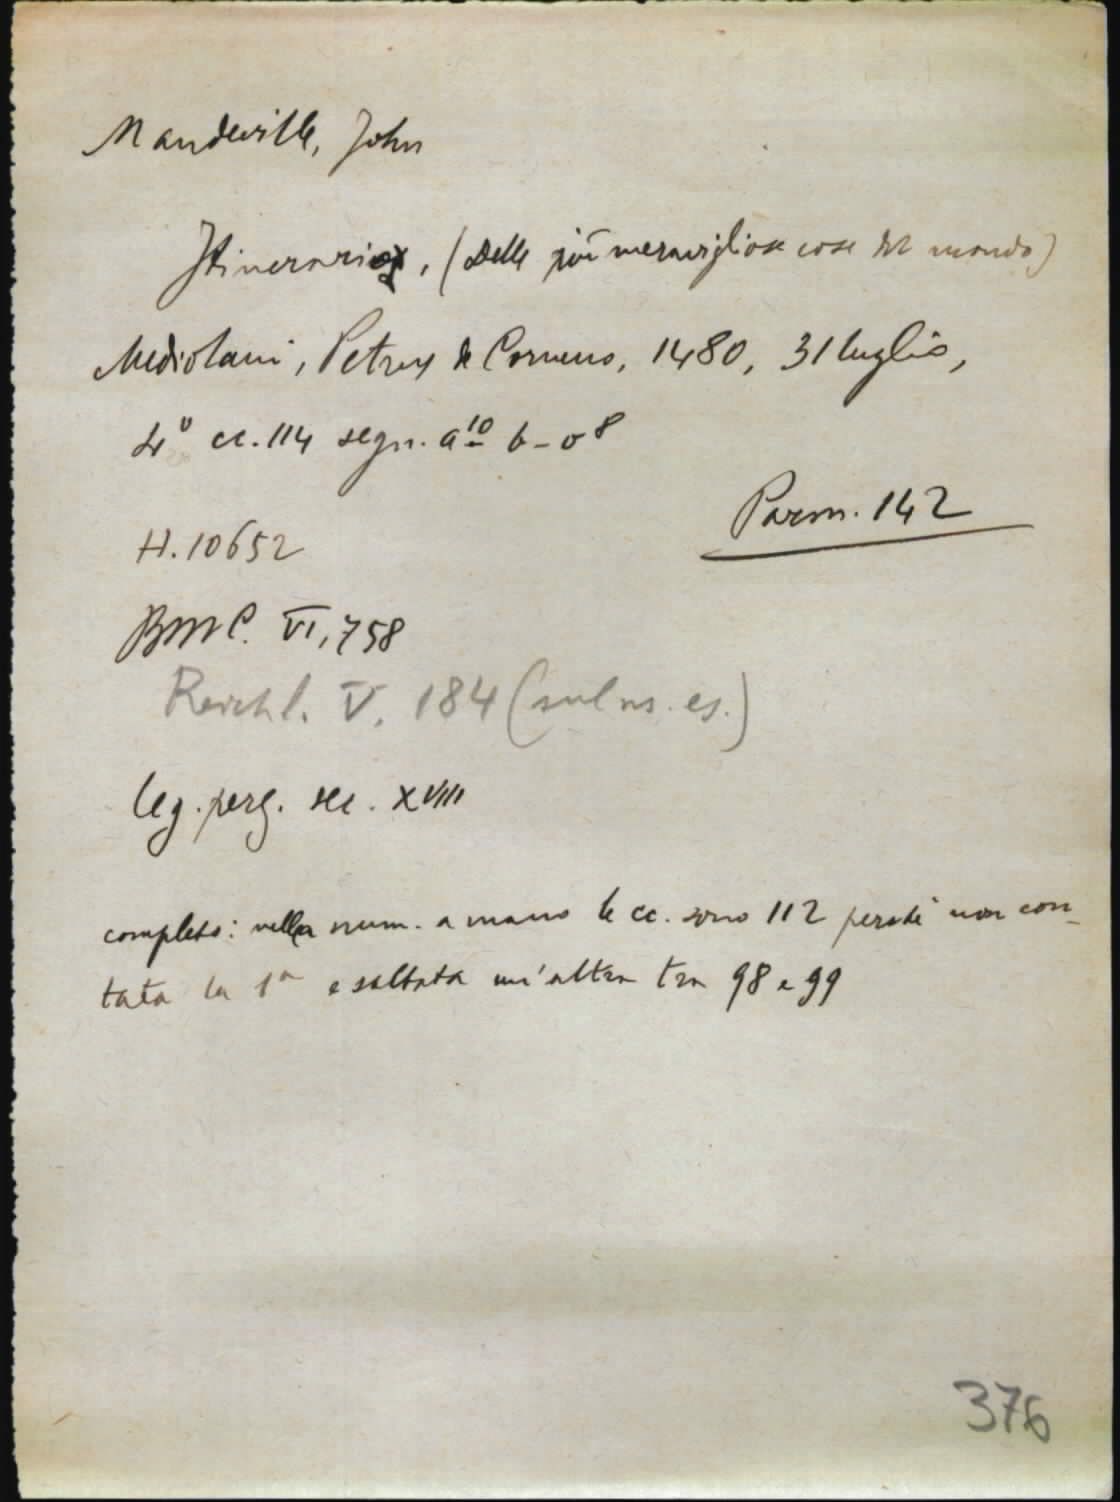 Mandeville, John
Itinerario, (Delle più meravigliose cose del mondo)
Mediolani, Petrus de Corneno, 1480, 31 luglio,
4° cc. 114 segn. a¹⁰ b-o⁸
Parm. 142
H. 10652
BMC. VI, 758
Reichl. V. 184 (sul ns. es.)
leg. perg. sec. XVIII
completo: nella num. a mano le cc. sono 112 perché non con-
tata la 1ª e saltata un'altra tra 98 e 99
376